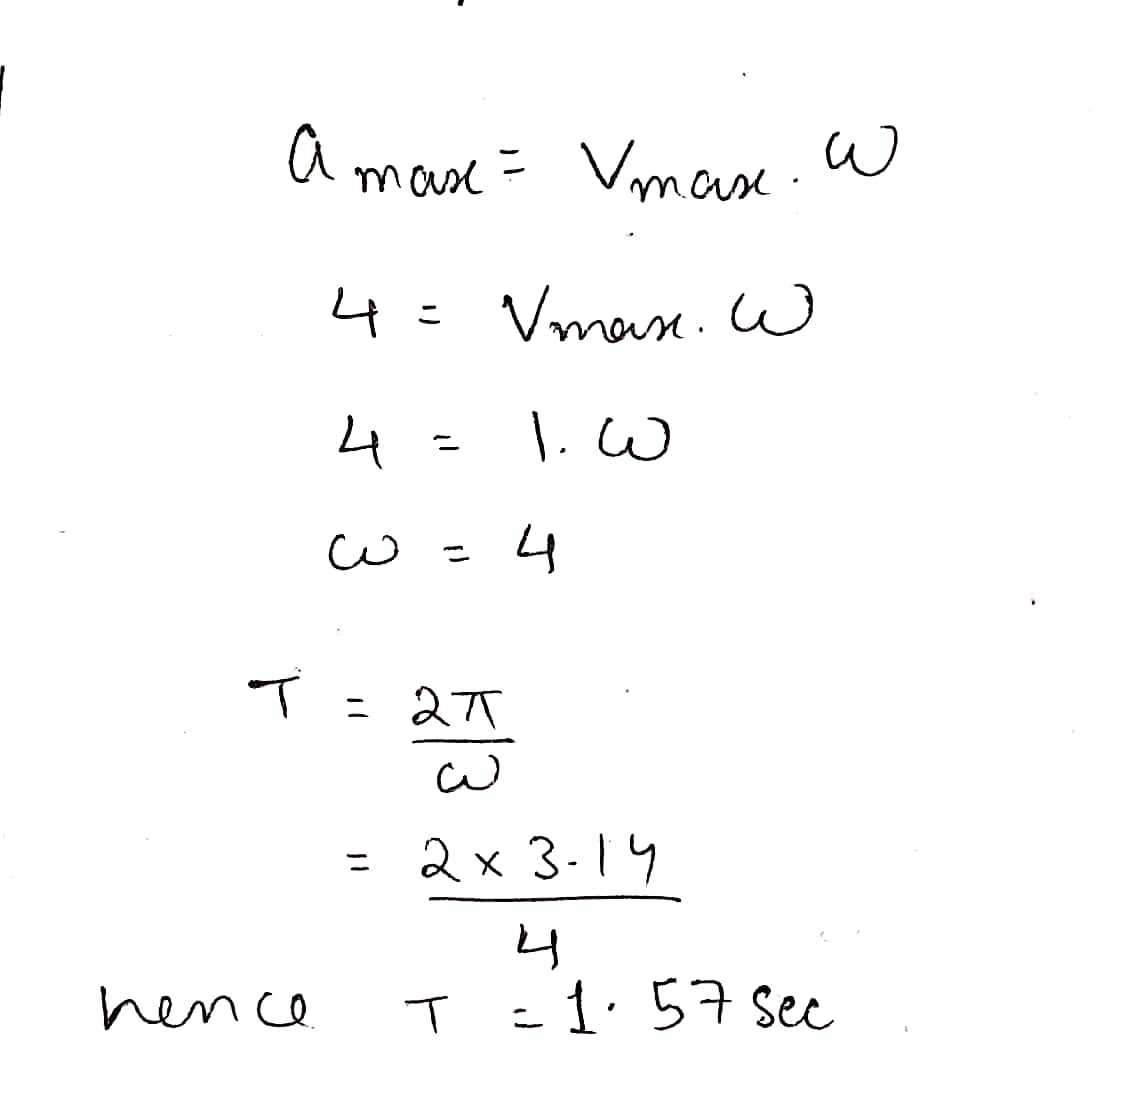 a max = Vmax . ω
4 = Vmax . ω
4 = 1. ω
ω = 4
T = 2π
ω
= 2 x 3.14
4
hence T = 1.57 sec